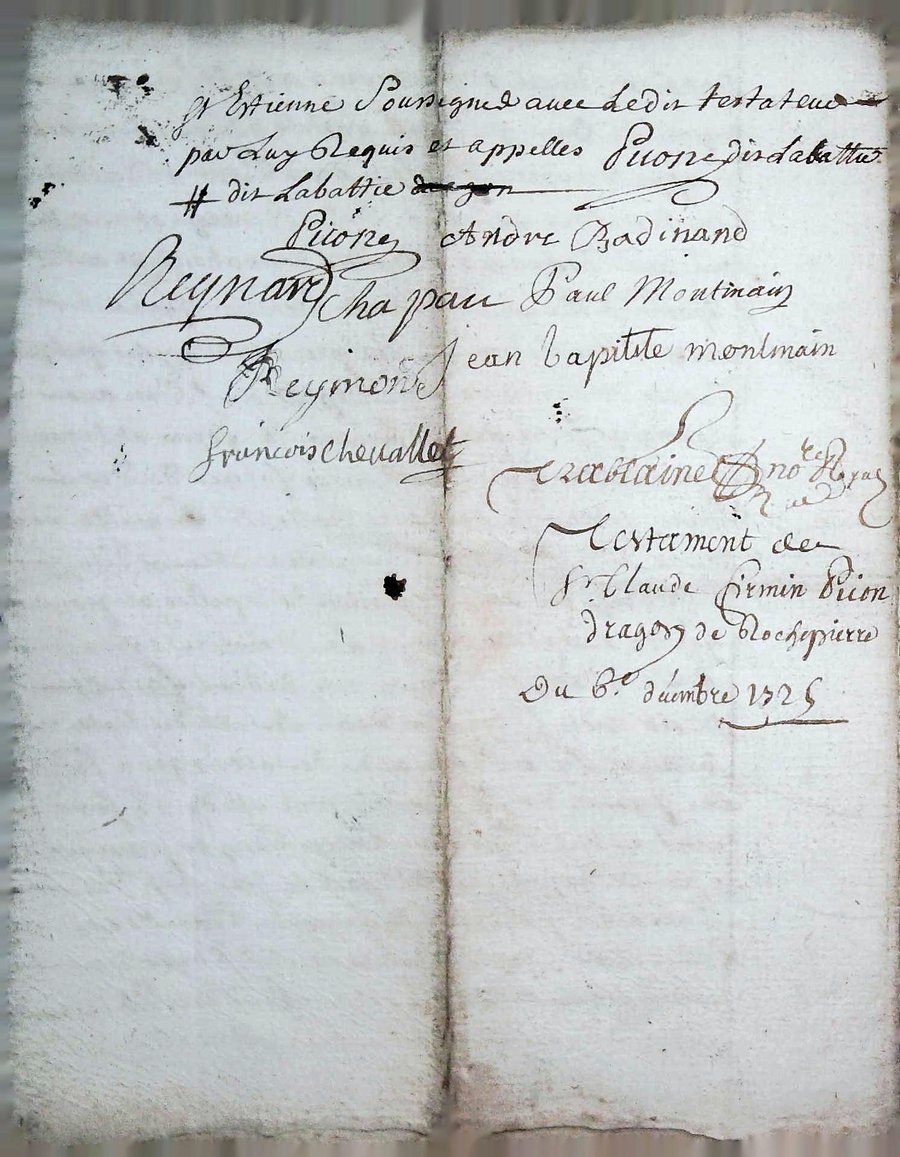 St Estienne Soussignés avec Ledit testateur
par Luy Requis et appelles Picon dit Labattie
# dit Labattie
Picon Andre Badinand
Reynard Chapau Paul Montmain
Reymond Jean bapttite montmain
francois chevallet
no.re Royal
Testament de
Sr Claude firmin Picon
dragon de Rochepierre
Du 6.e décembre 1725